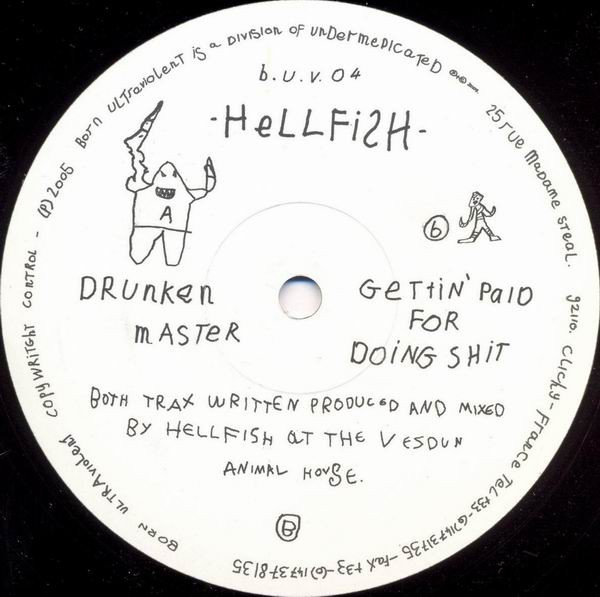 BORN ULTRAVIOLENT IS A DIVISION OF UNDERMEDICATED
25 RUE MADAME STEAL. 92110. CLICHY-FRANCE TEL +33-(0)147317135-FAX +33-(0)147378135
BORN ULTRAVIOLENT COPYWRITGHT CONTROL - (P) 2005
b.U.V.04
-HELLFISH-
A
b
DRUNKEN
MASTER
GETTIN' PAID
FOR
DOING SHIT
BOTH TRAX WRITTEN PRODUCED AND MIXED
BY HELLFISH AT THE VESDUN
ANIMAL HOUSE.
B